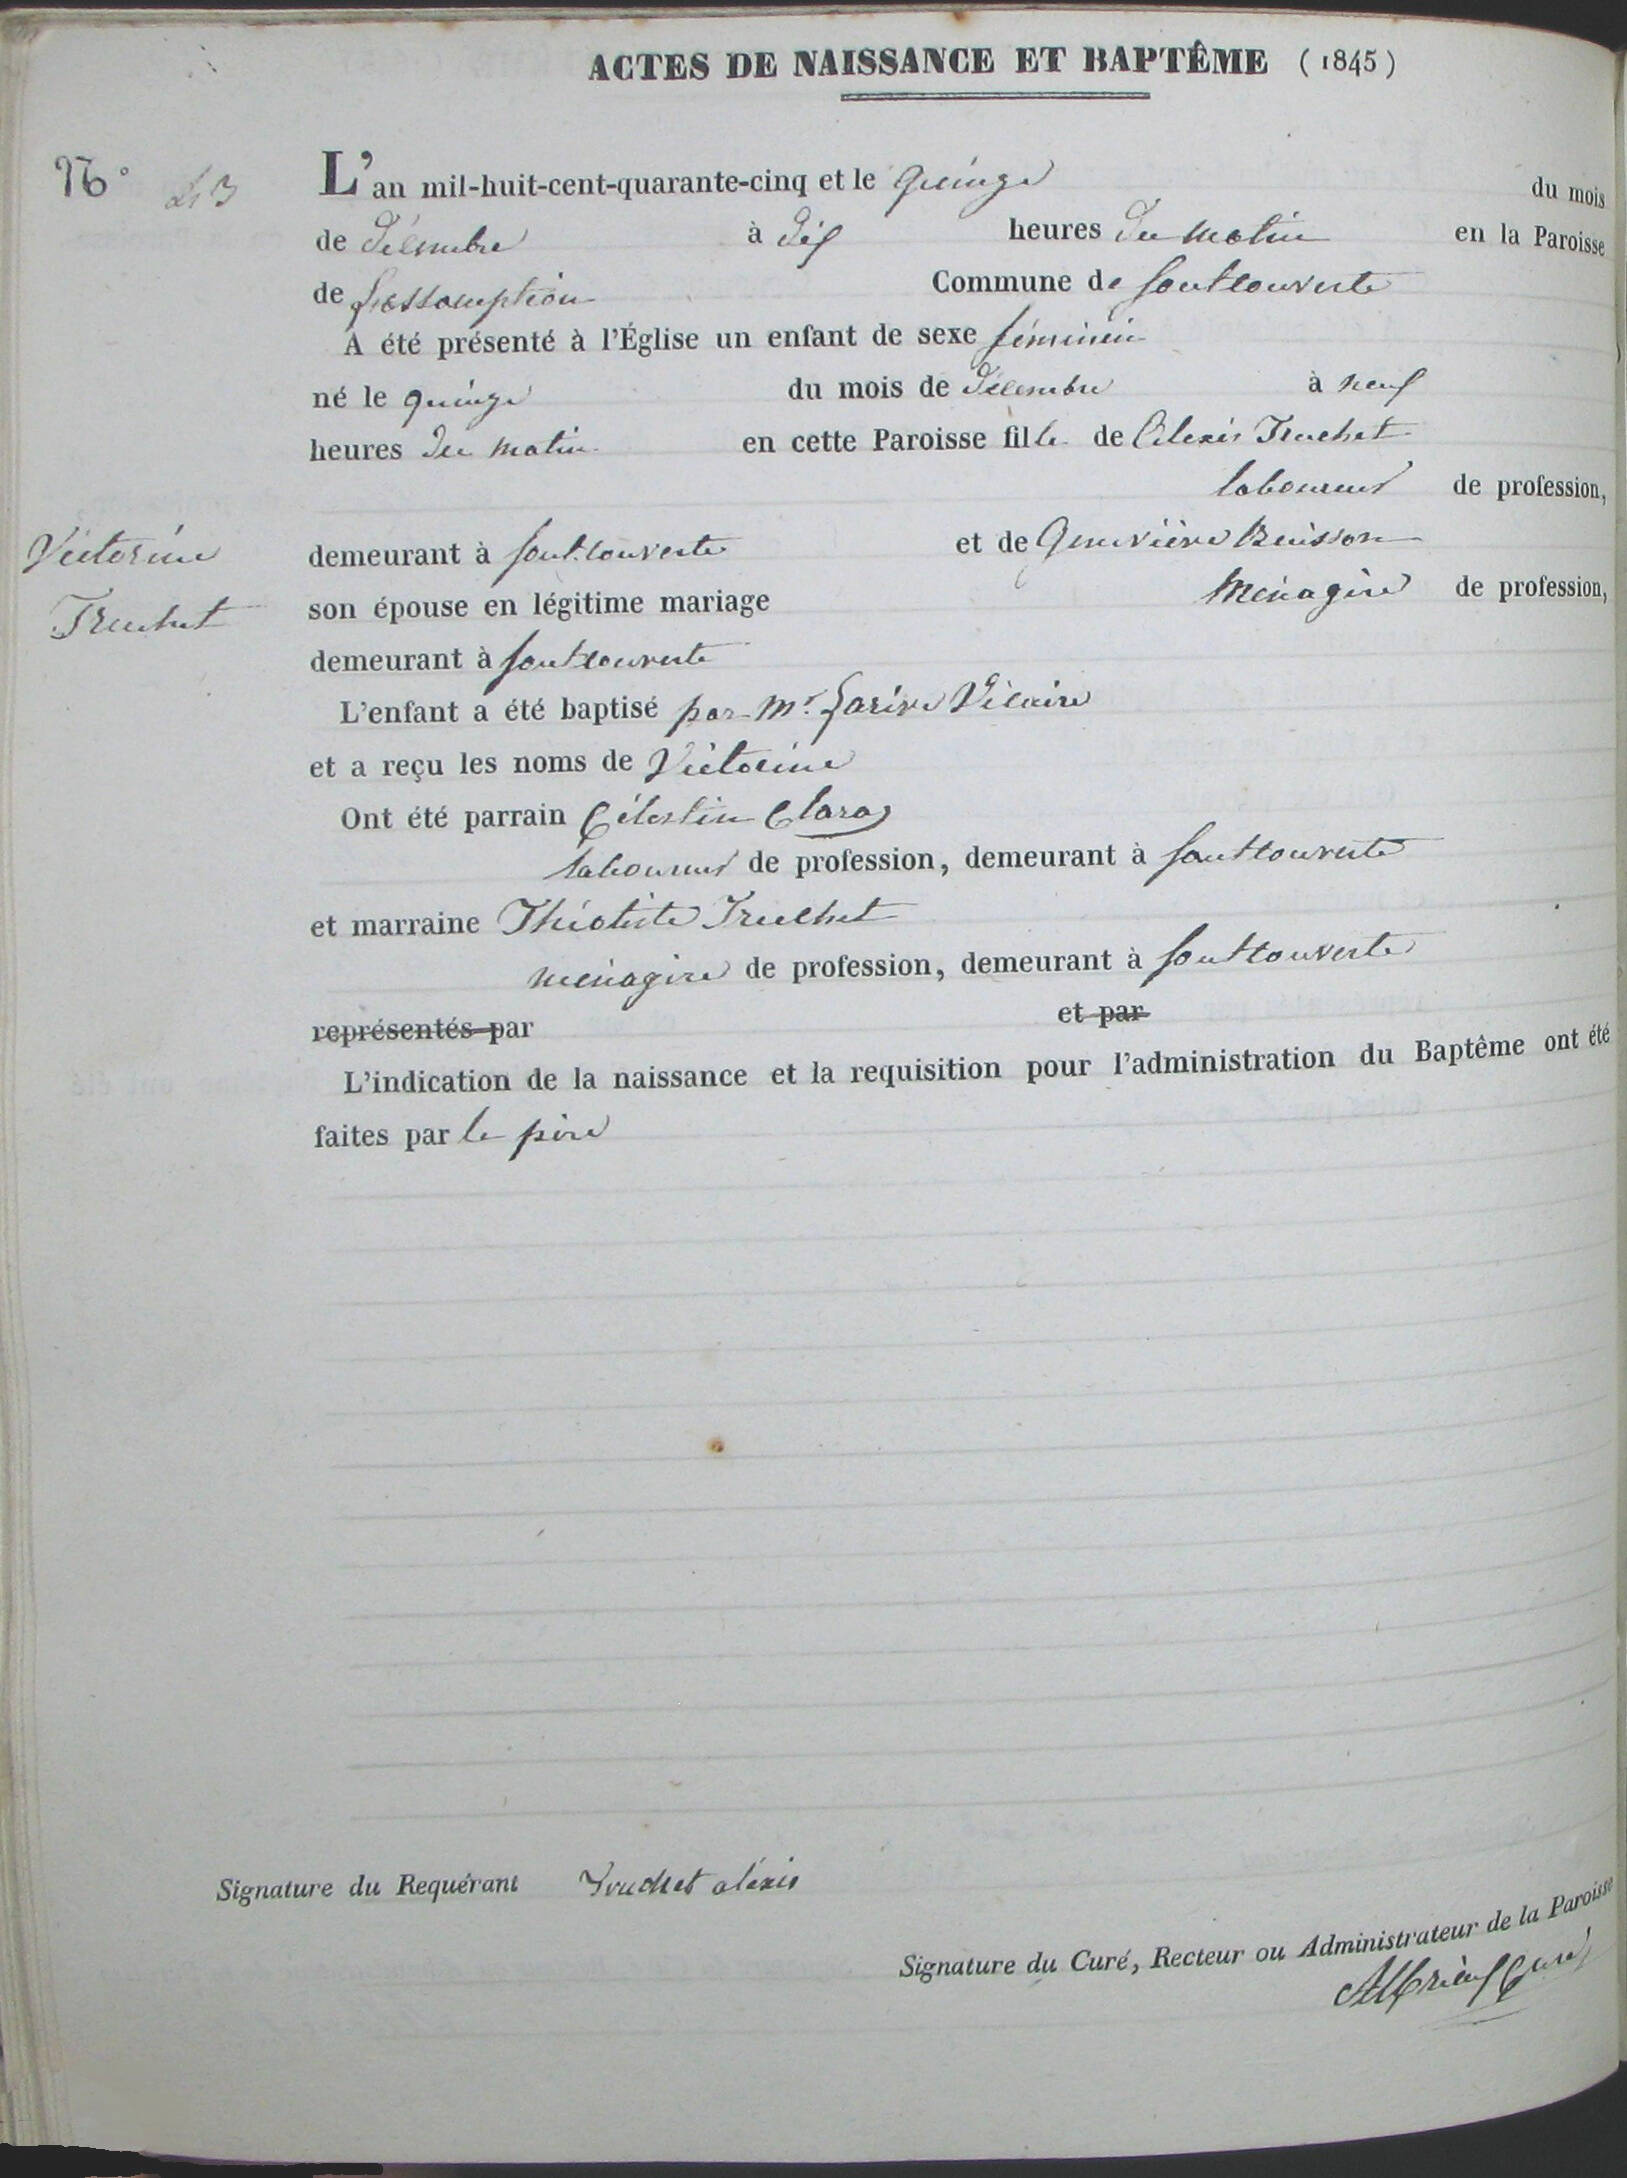 ACTES DE NAISSANCE ET BAPTÊME (1845)
N° 43
L'an mil-huit-cent-quarante-cinq et le quinze du mois
de Décembre à dix heures du matin en la Paroisse
de L'assomption Commune de fontcouverte
A été présenté à l'Église un enfant de sexe féminin
né le quinze du mois de Décembre à neuf
heures du matin en cette Paroisse fille de Alexis Truchet
laboureur de profession,
Victorine
demeurant à fontcouverte et de Geneviève Buisson
Truchet
son épouse en légitime mariage Ménagère de profession,
demeurant à fontcouverte
L'enfant a été baptisé par Mr. Vicaire
et a reçu les noms de Victorine
Ont été parrain Célestin Claraz
laboureur de profession, demeurant à fontcouverte
et marraine Théotiste Truchet
ménagère de profession, demeurant à fontcouverte
représentés par et par
L'indication de la naissance et la requisition pour l'administration du Baptême ont été
faites par le père
Signature du Requérant Truchet alexis
Signature du Curé, Recteur ou Administrateur de la Paroisse
Curé